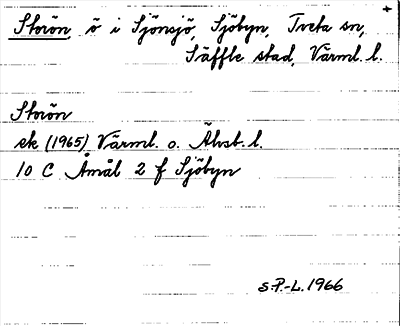 Storön, ö i Sjönsjö, Sjöbyn, Tveta sn,
Säffle stad, Värml. l.
Storön
ek (1965) Värml. o. Älvsb. l.
10 C Åmål 2 f Sjöbyn
S.P.-L. 1966